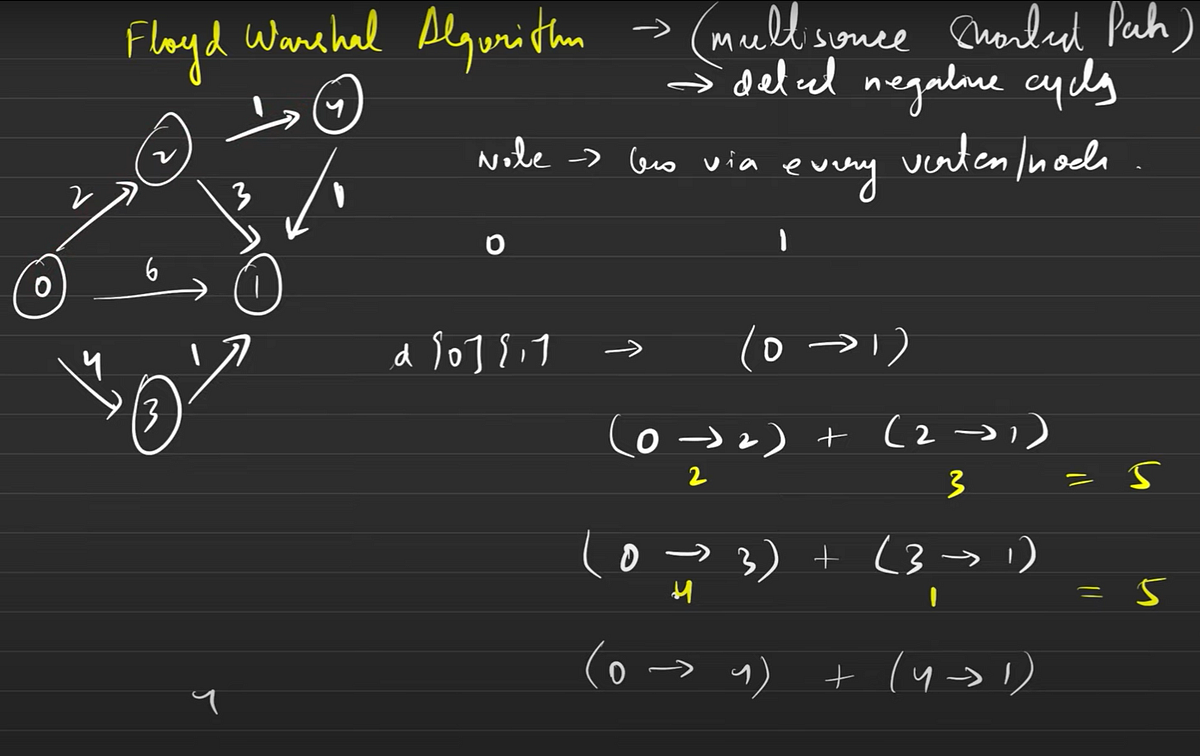 Floyd Warshal Algorithm → (multisource Shortest Path)
→ detect negative cycles
Note → Go via every vertex/node.
1 4
2
2 3 1
0 1
0 6 1
d[0][1] → (0 → 1)
4 1
3
(0 → 2) + (2 → 1)
2 3 = 5
(0 → 3) + (3 → 1)
4 1 = 5
(0 → 4) + (4 → 1)
4